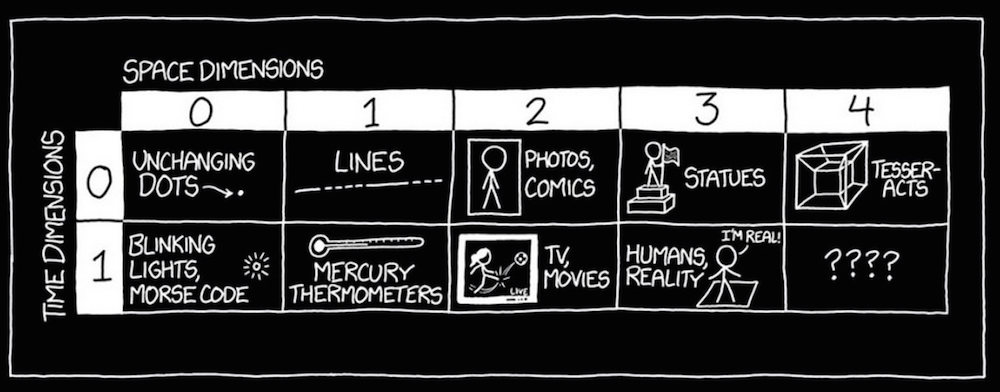 SPACE DIMENSIONS
0 1 2 3 4
TIME DIMENSIONS
0
UNCHANGING
DOTS
LINES
PHOTOS,
COMICS
STATUES
TESSER-
ACTS
1
BLINKING
LIGHTS,
MORSE CODE
MERCURY
THERMOMETERS
LIVE
TV,
MOVIES
I'M REAL!
HUMANS,
REALITY
????